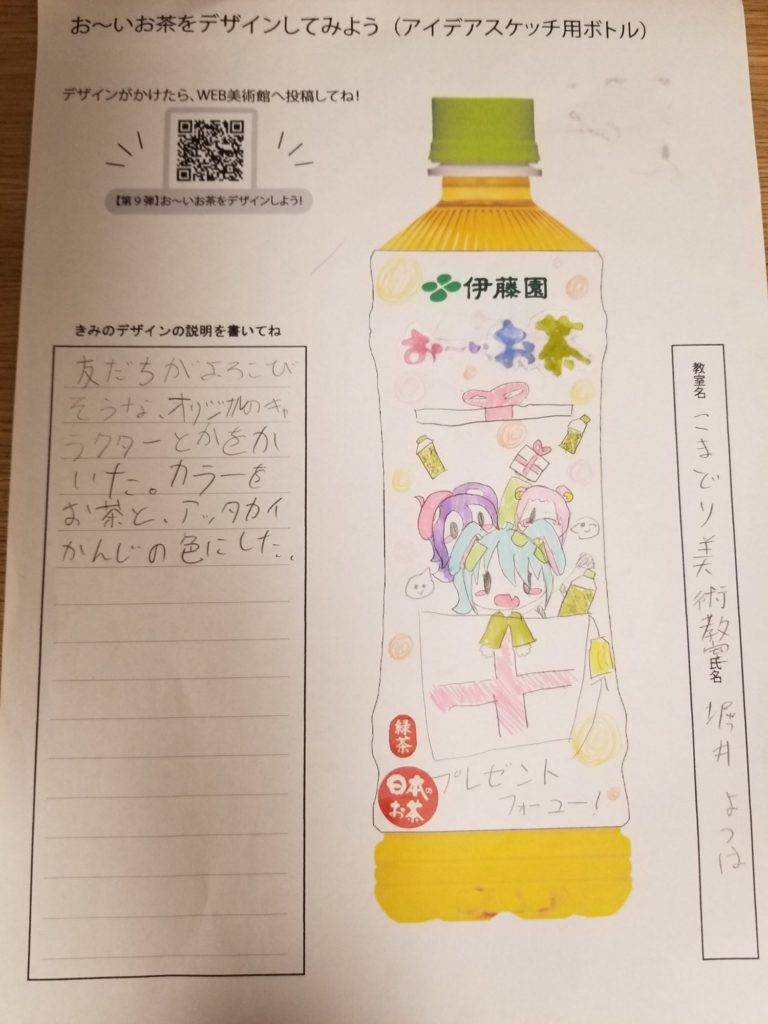 お～いお茶をデザインしてみよう（アイデアスケッチ用ボトル）
デザインがかけたら、WEB美術館へ投稿してね！
【第９弾】お～いお茶をデザインしよう！
きみのデザインの説明を書いてね
友だちがよろこび
そうな、オリジナルのキャ
ラクターとかをか
いた。カラーを
お茶と、アッタカイ
かんじの色にした。
伊藤園
お～いお茶
緑茶
日本の
お茶
プレゼント
フォーユー！
教室名
こまどり美術教室
氏名
堀井 よつは